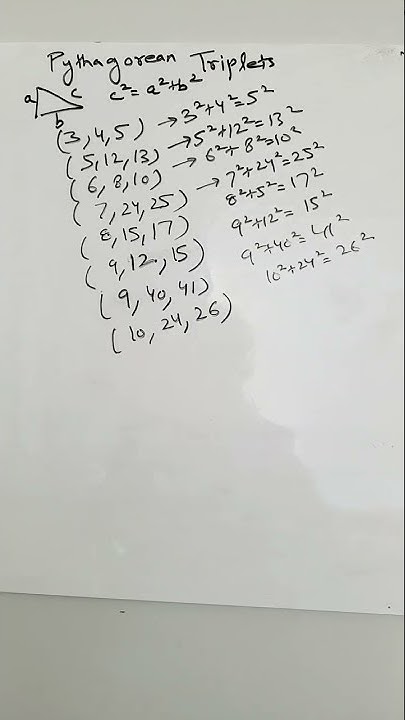 Pythagorean Triplets
a c b c² = a²+b²
(3, 4, 5) → 3²+4²=5²
(5, 12, 13) → 5²+12²=13²
(6, 8, 10) → 6²+8²=10²
(7, 24, 25) → 7²+24²=25²
(8, 15, 17) 8²+5²= 17²
(9, 12, 15) 9²+12²= 15²
(9, 40, 41) 9²+40²= 41²
(10, 24, 26) 10²+24²= 26²